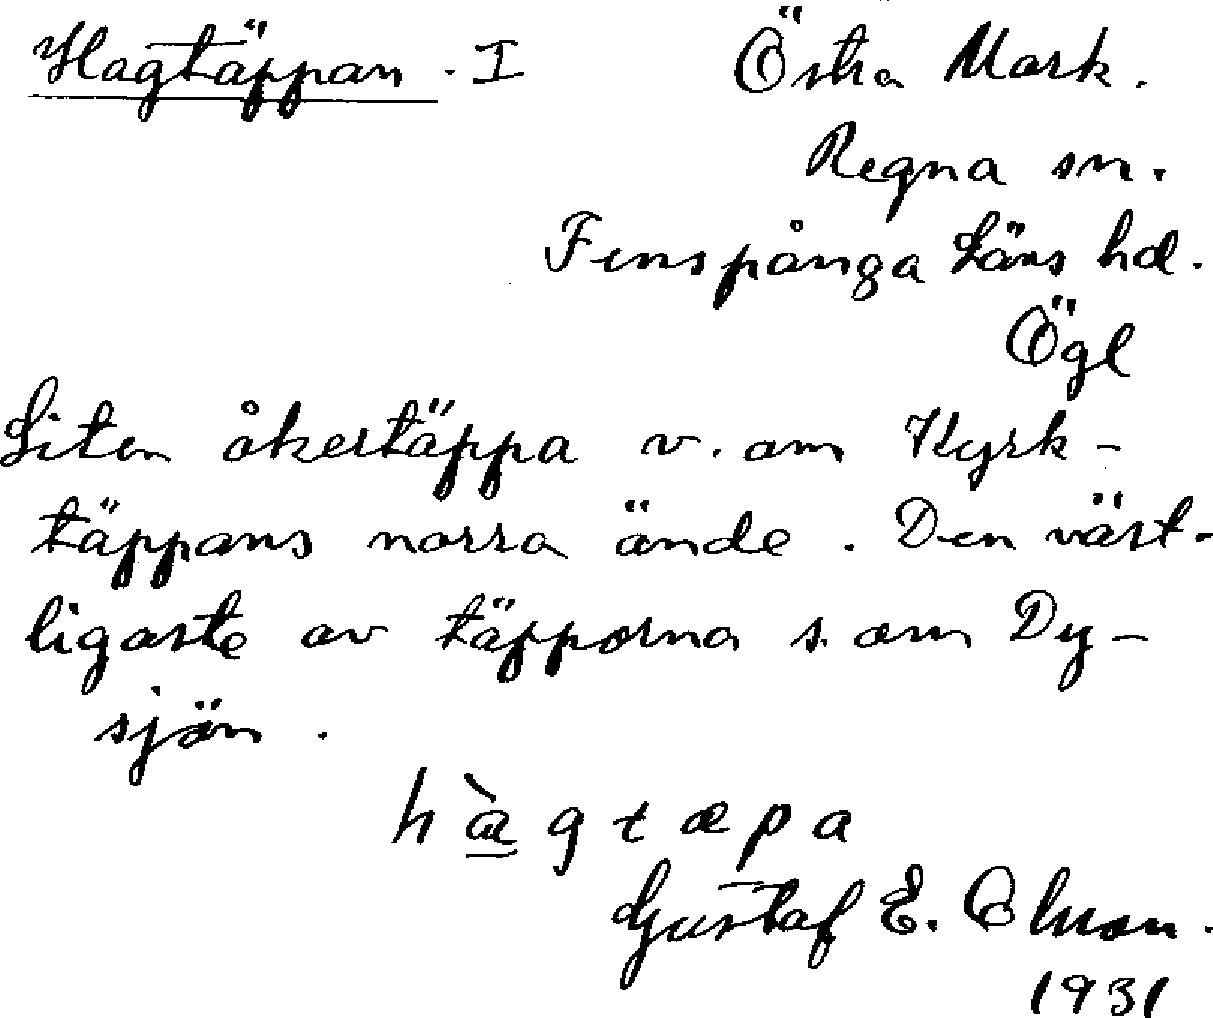 Hagtäppan. I Östra Mark.
Regna sn.
Finspånga Läns hd.
Ögl
Liten åkertäppa v. om Kyrk-
täppans norra ände. Den väst-
ligaste av täpporna s. om Dy-
sjön.
hàgtæpa
Gustaf E. Olsson.
1931